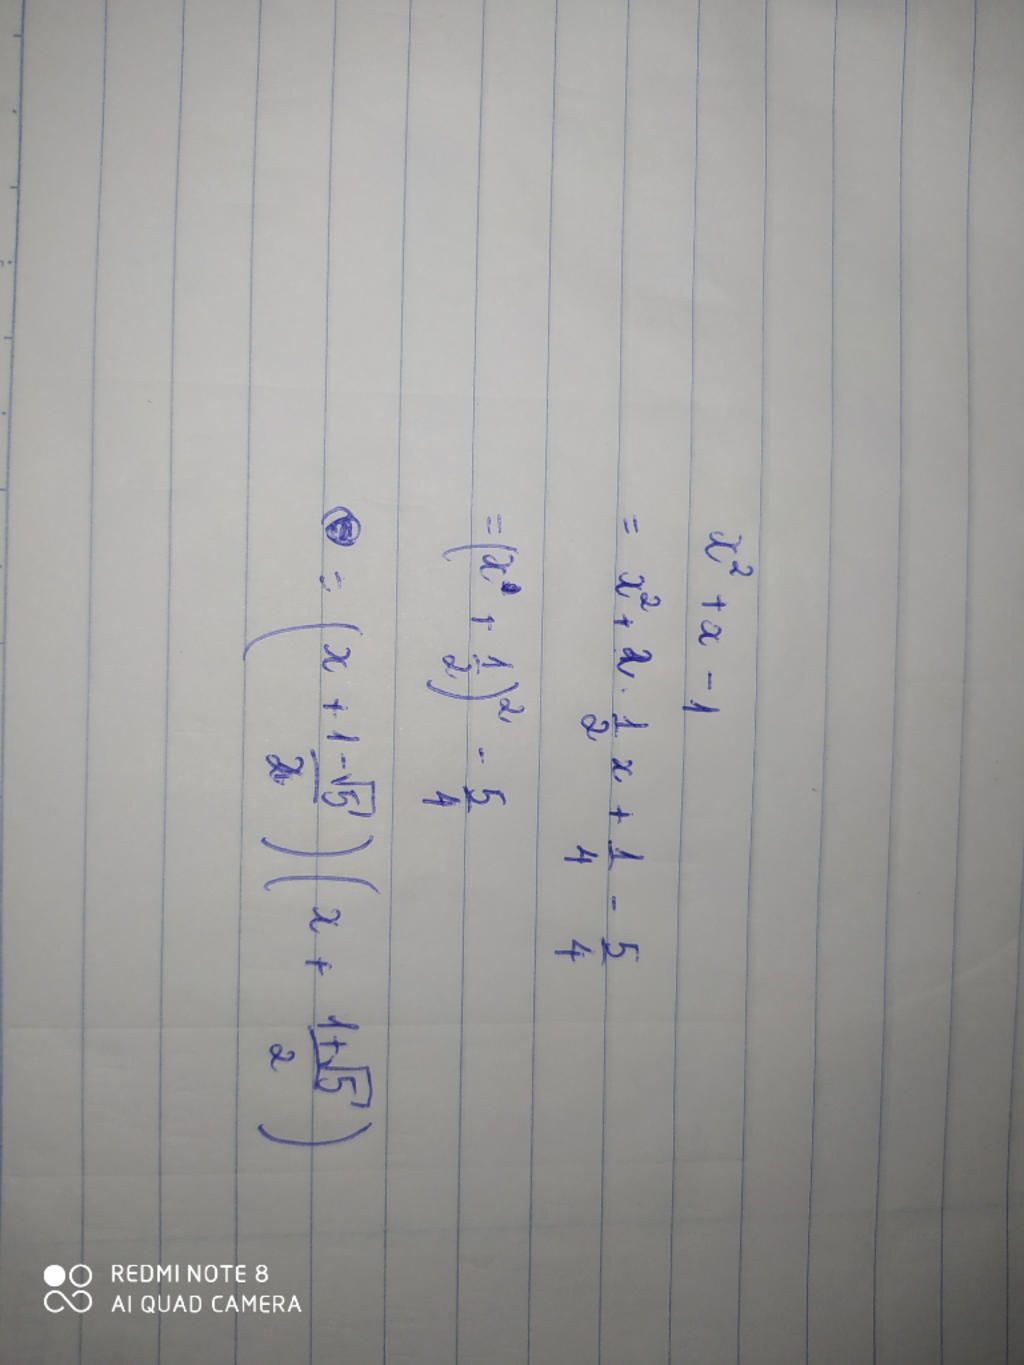 x² + x - 1
= x² + 2. 1/2 x + 1/4 - 5/4
= (x + 1/2)² - 5/4
= (x + 1-√5/2)(x + 1+√5/2)
REDMI NOTE 8
AI QUAD CAMERA